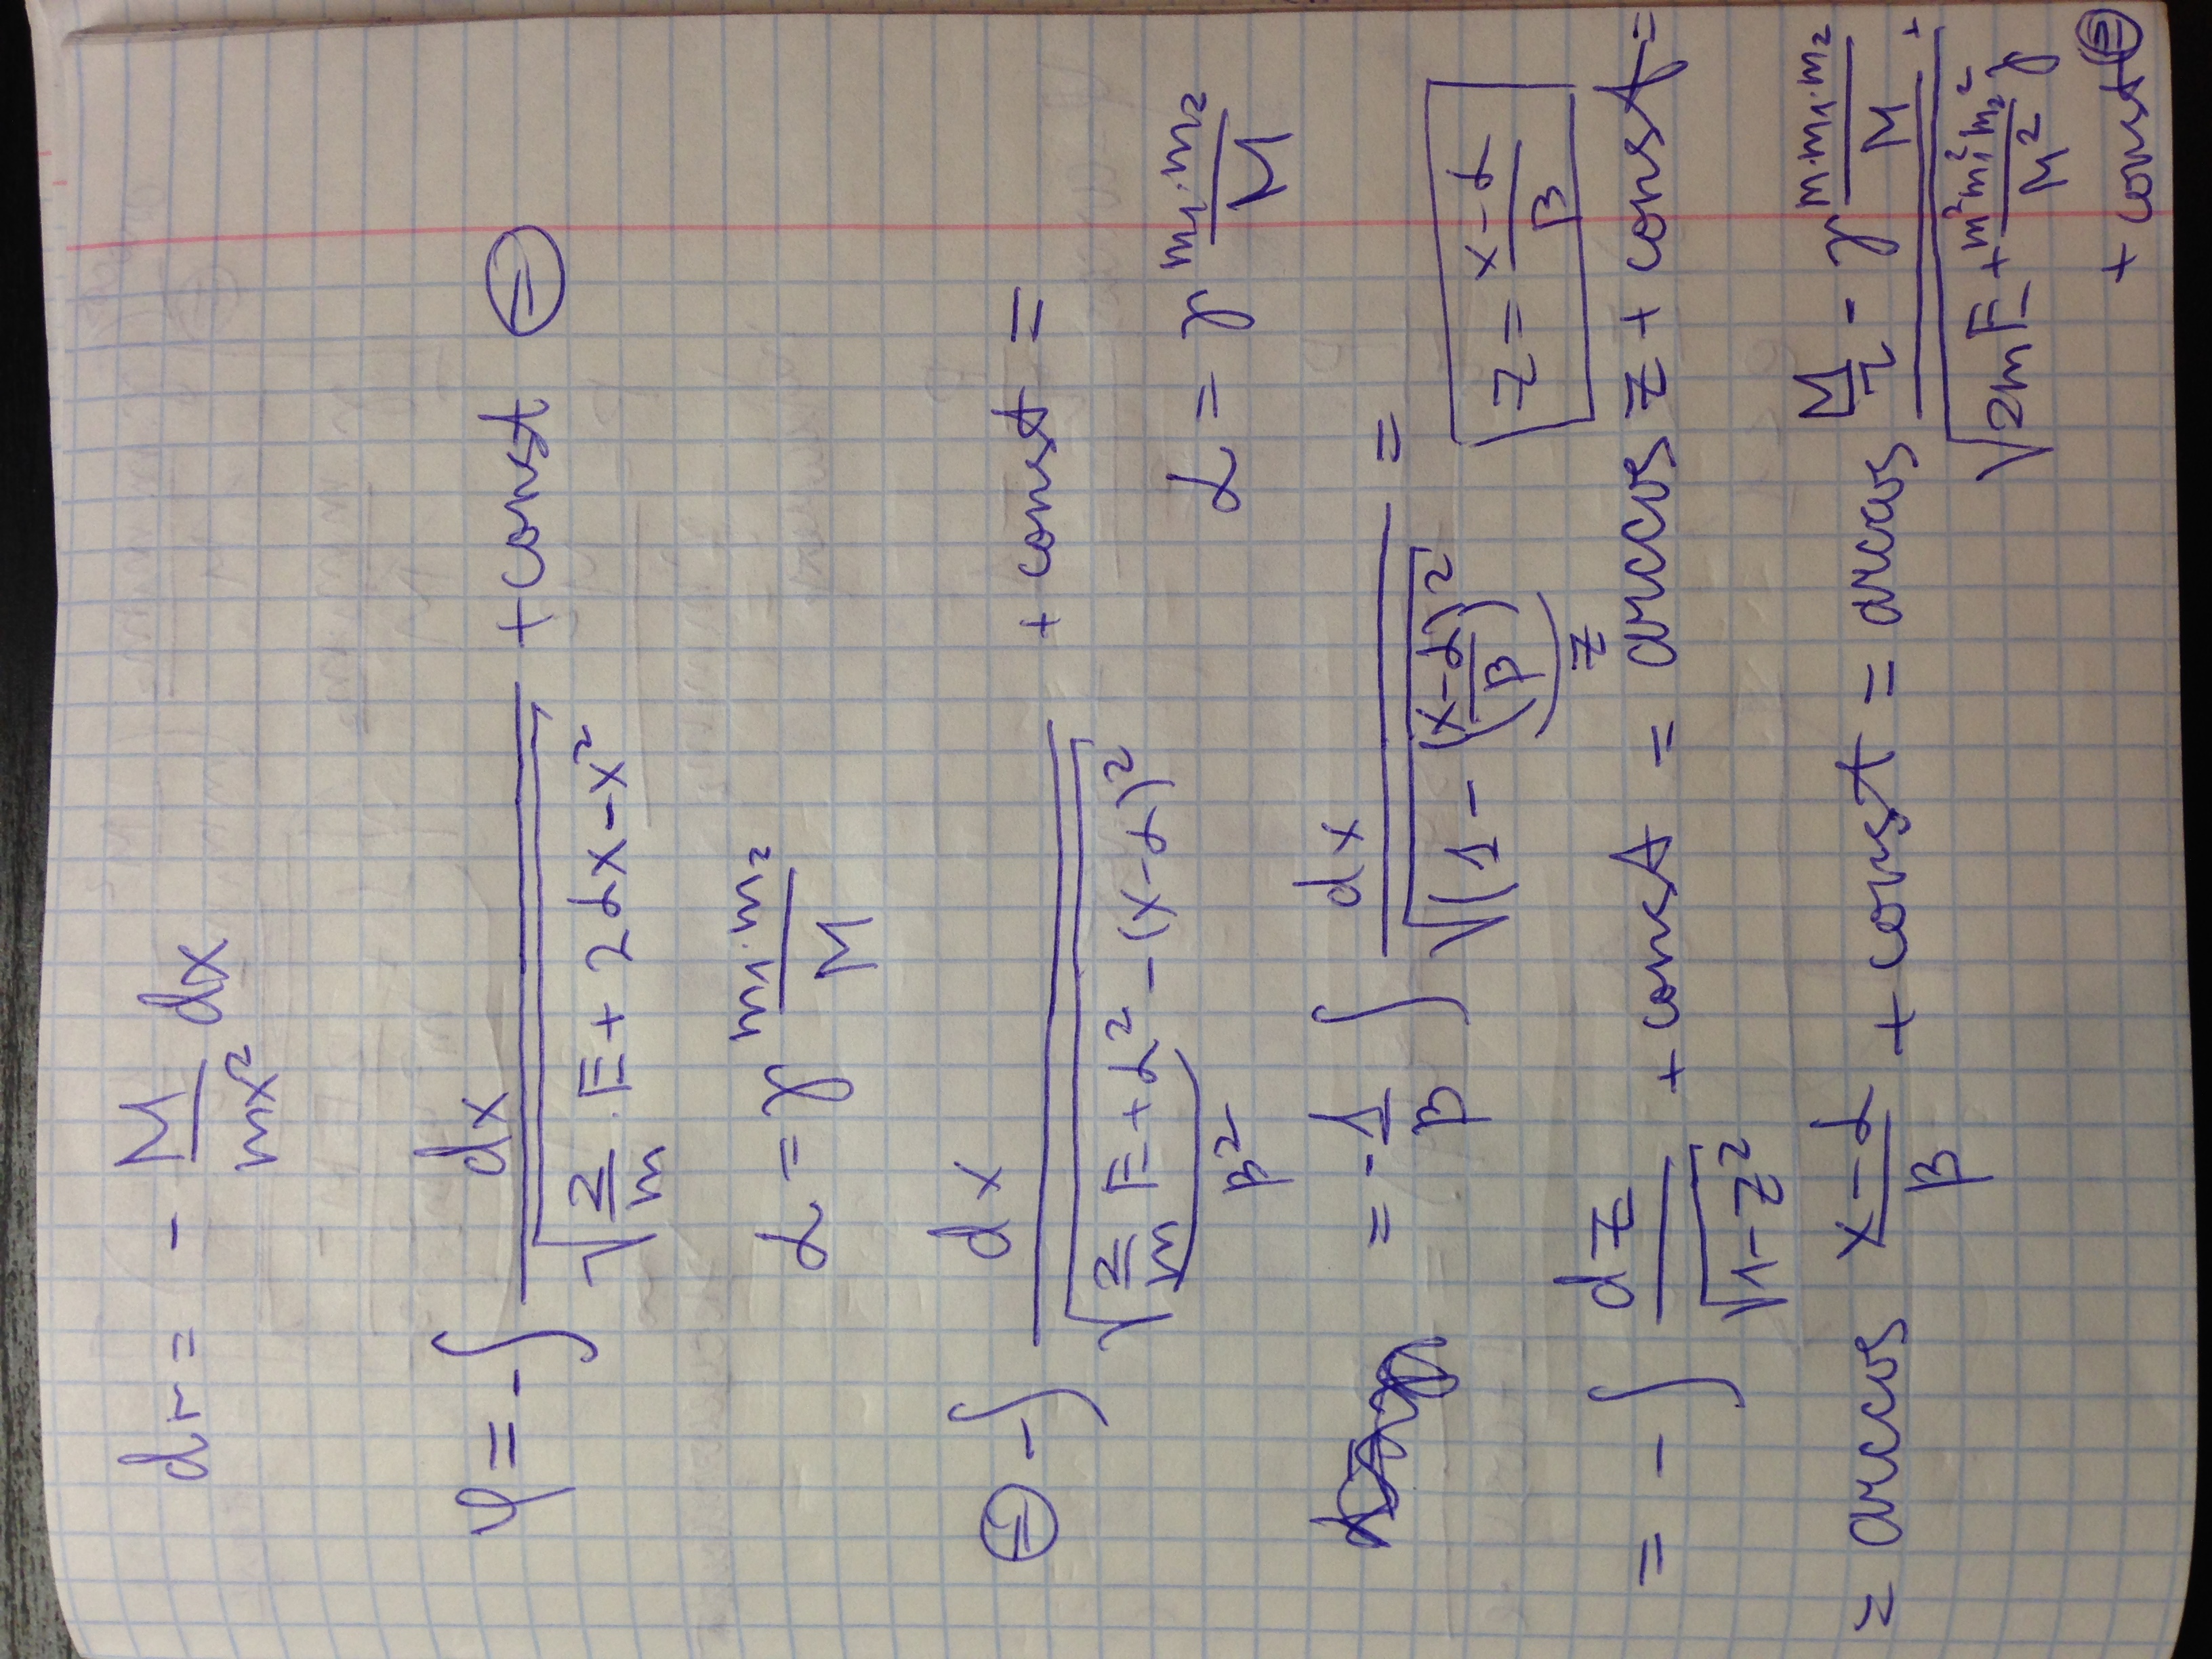 dr = - M/(mx²) dx
φ = -∫ dx/√(2/m · E + 2αx - x²) + const ⊜
α = γ (m₁·m₂)/M
⊜ -∫ dx/√(2/m E + α² - (x-α)²) + const =
β² α = γ (m₁·m₂)/M
= -1/β ∫ dx/√(1 - ((x-α)/β)²) =
z z = (x-α)/β
= -∫ dz/√(1-z²) + const = arccos z + const =
= arccos (x-α)/β + const = arccos (M/r - γ (m·m₁·m₂)/M)/√(2mE + (m²m₁²m₂²)/M² γ) +
+ const ⊜